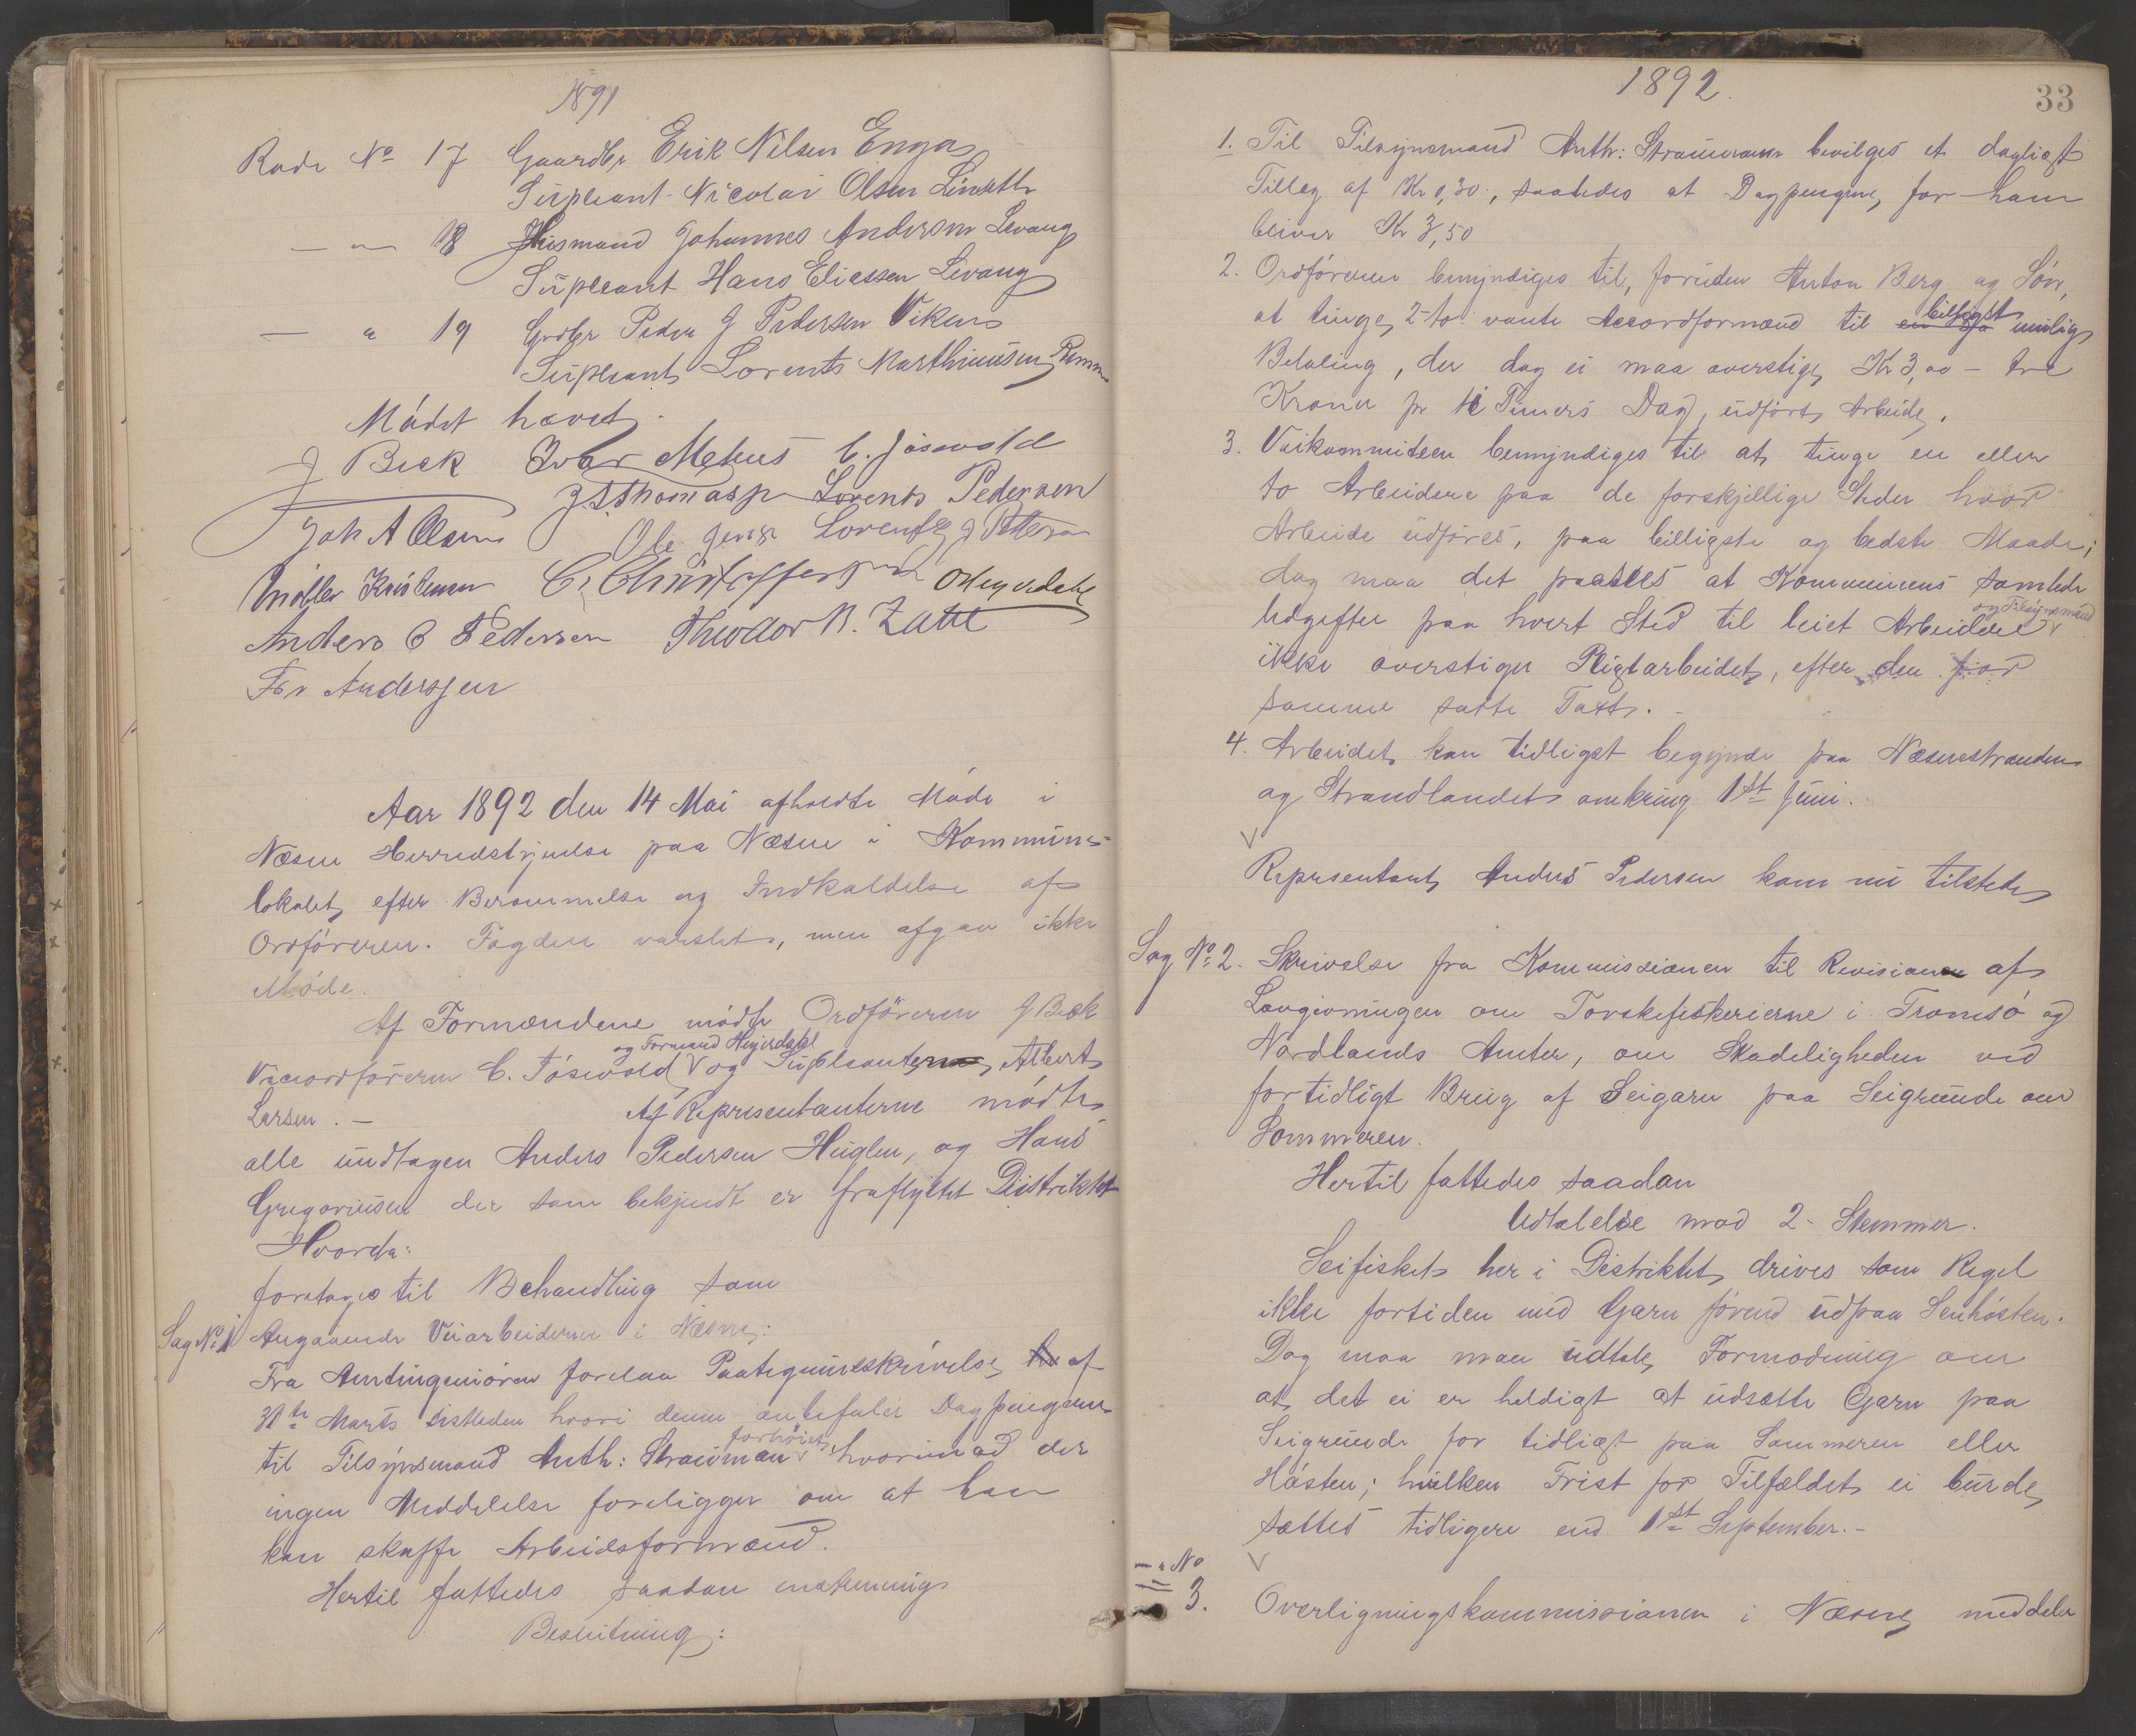 1891
Rode No 17 Gaardbr Erik Nilsen Enga
Supleant Nicolai Olsen Linseth
— " — 18 Husmand Johannes Andersen Levang
Supleant Hans Eliassen Levang
— " 19 Grdbr Peder J Pedersen Viken
Supleant Lorents Marthinusen
Mödet hævet.
J Beck Ivar Mehus C. Jöswold
J. S. Thomasp Lorents Pedersen
Joh A Olsen Ole Jensen Lorents J Peterson
Kristensen C. Christoffersen O Heyerdahl
Anders C Pedersen Theodor N. Zahl
Andersen
Aar 1892 den 14 Mai afholdte Möde i
Næsne Herredstyrelse paa Næsne i Kommune-
lokalet efter Berammelse og Indkaldelse af
Ordföreren. Fogden varslet, men afgav ikke
Möde.
Af Formændene mödte Ordföreren J Beck
og Formand Heyerdahl
Viceordföreren C. Jöswold V og Supleanterne Albert
Larsen. — Af Repræsentanterne mödte
alle undtagen Anders Pedersen Huglen, og Hans
Gregoriusen der som bekjendt er fraflyttet Distriktet
Hvorda:
foretages til Behandling som
Sag No 1 Angaaende Veiarbeiderne i Næsne:
Fra Amtingeniören forelaa Paategningsskrivelse af
31te Marts sistleden hvori denne anbefaler Dagpengene
forhöiet
til Tilsynsmand Anth: Strauman V hvorimod der
ingen Meddelelse foreligger om at han
kan skaffe Arbeidsformænd.
Hertil fattedes saadan enstemmig
Beslutning:
1892.
33
1. Til Tilsynsmand Anth: Strauman bevilges et dagligt
Tillæg af Kr 0,50, saaledes at Dagpengene for ham
bliver Kr 3,50
2. Ordföreren bemyndiges til, foruden Anton Berg og Sön,
at tinge 2 to vante Accordformænd til
billigst mulig
Betaling, der dog ei maa overstige Kr 3,00 — tre
Kroner pr Timers Dag, udfört Arbeide.
3. Veikommiteen bemyndiges til at tinge en eller
to Arbeidere paa de forskjellige Steder hvor
Arbeide udföres, paa billigste og bedste Maade;
dog maa det paasees at Kommunens samlede
og Tilsynsmænd
Udgifter paa hvert Sted til leiet Arbeidere V
ikke overstiger Pligtarbeidet, efter den for
samme satte Taxt. —
4. Arbeidet kan tidligst begynde paa Næsnestranden
og Strandlandet omkring 1st Juni.
V
Representant Anders Pedersen kom nu tilstede
Sag No 2. Skrivelse fra Kommissionen til Revisionen af
Lovgivningen om Torskefiskerierne i Tromsö og
Nordlands Amter, om Skadeligheden ved
fortidligt Brug af Seigarn paa Seigrunde om
Sommeren.
Hertil fattedes saadan
Udtalelse mod 2 Stemmer.
Seifisket her i Distriktet drives som Regel
ikke fortiden med Garn förend udpaa Senhösten.
Dog maa man udtale Formodning om
at det ei er heldigt at udsætte Garn paa
Seigrunde for tidligt paa Sommeren eller
Hösten; hvilken Frist for Tilfældet ei burde
sættes tidligere end 1st September. —
— " No V
3. Overligningskommissionen i Næsne meddeler